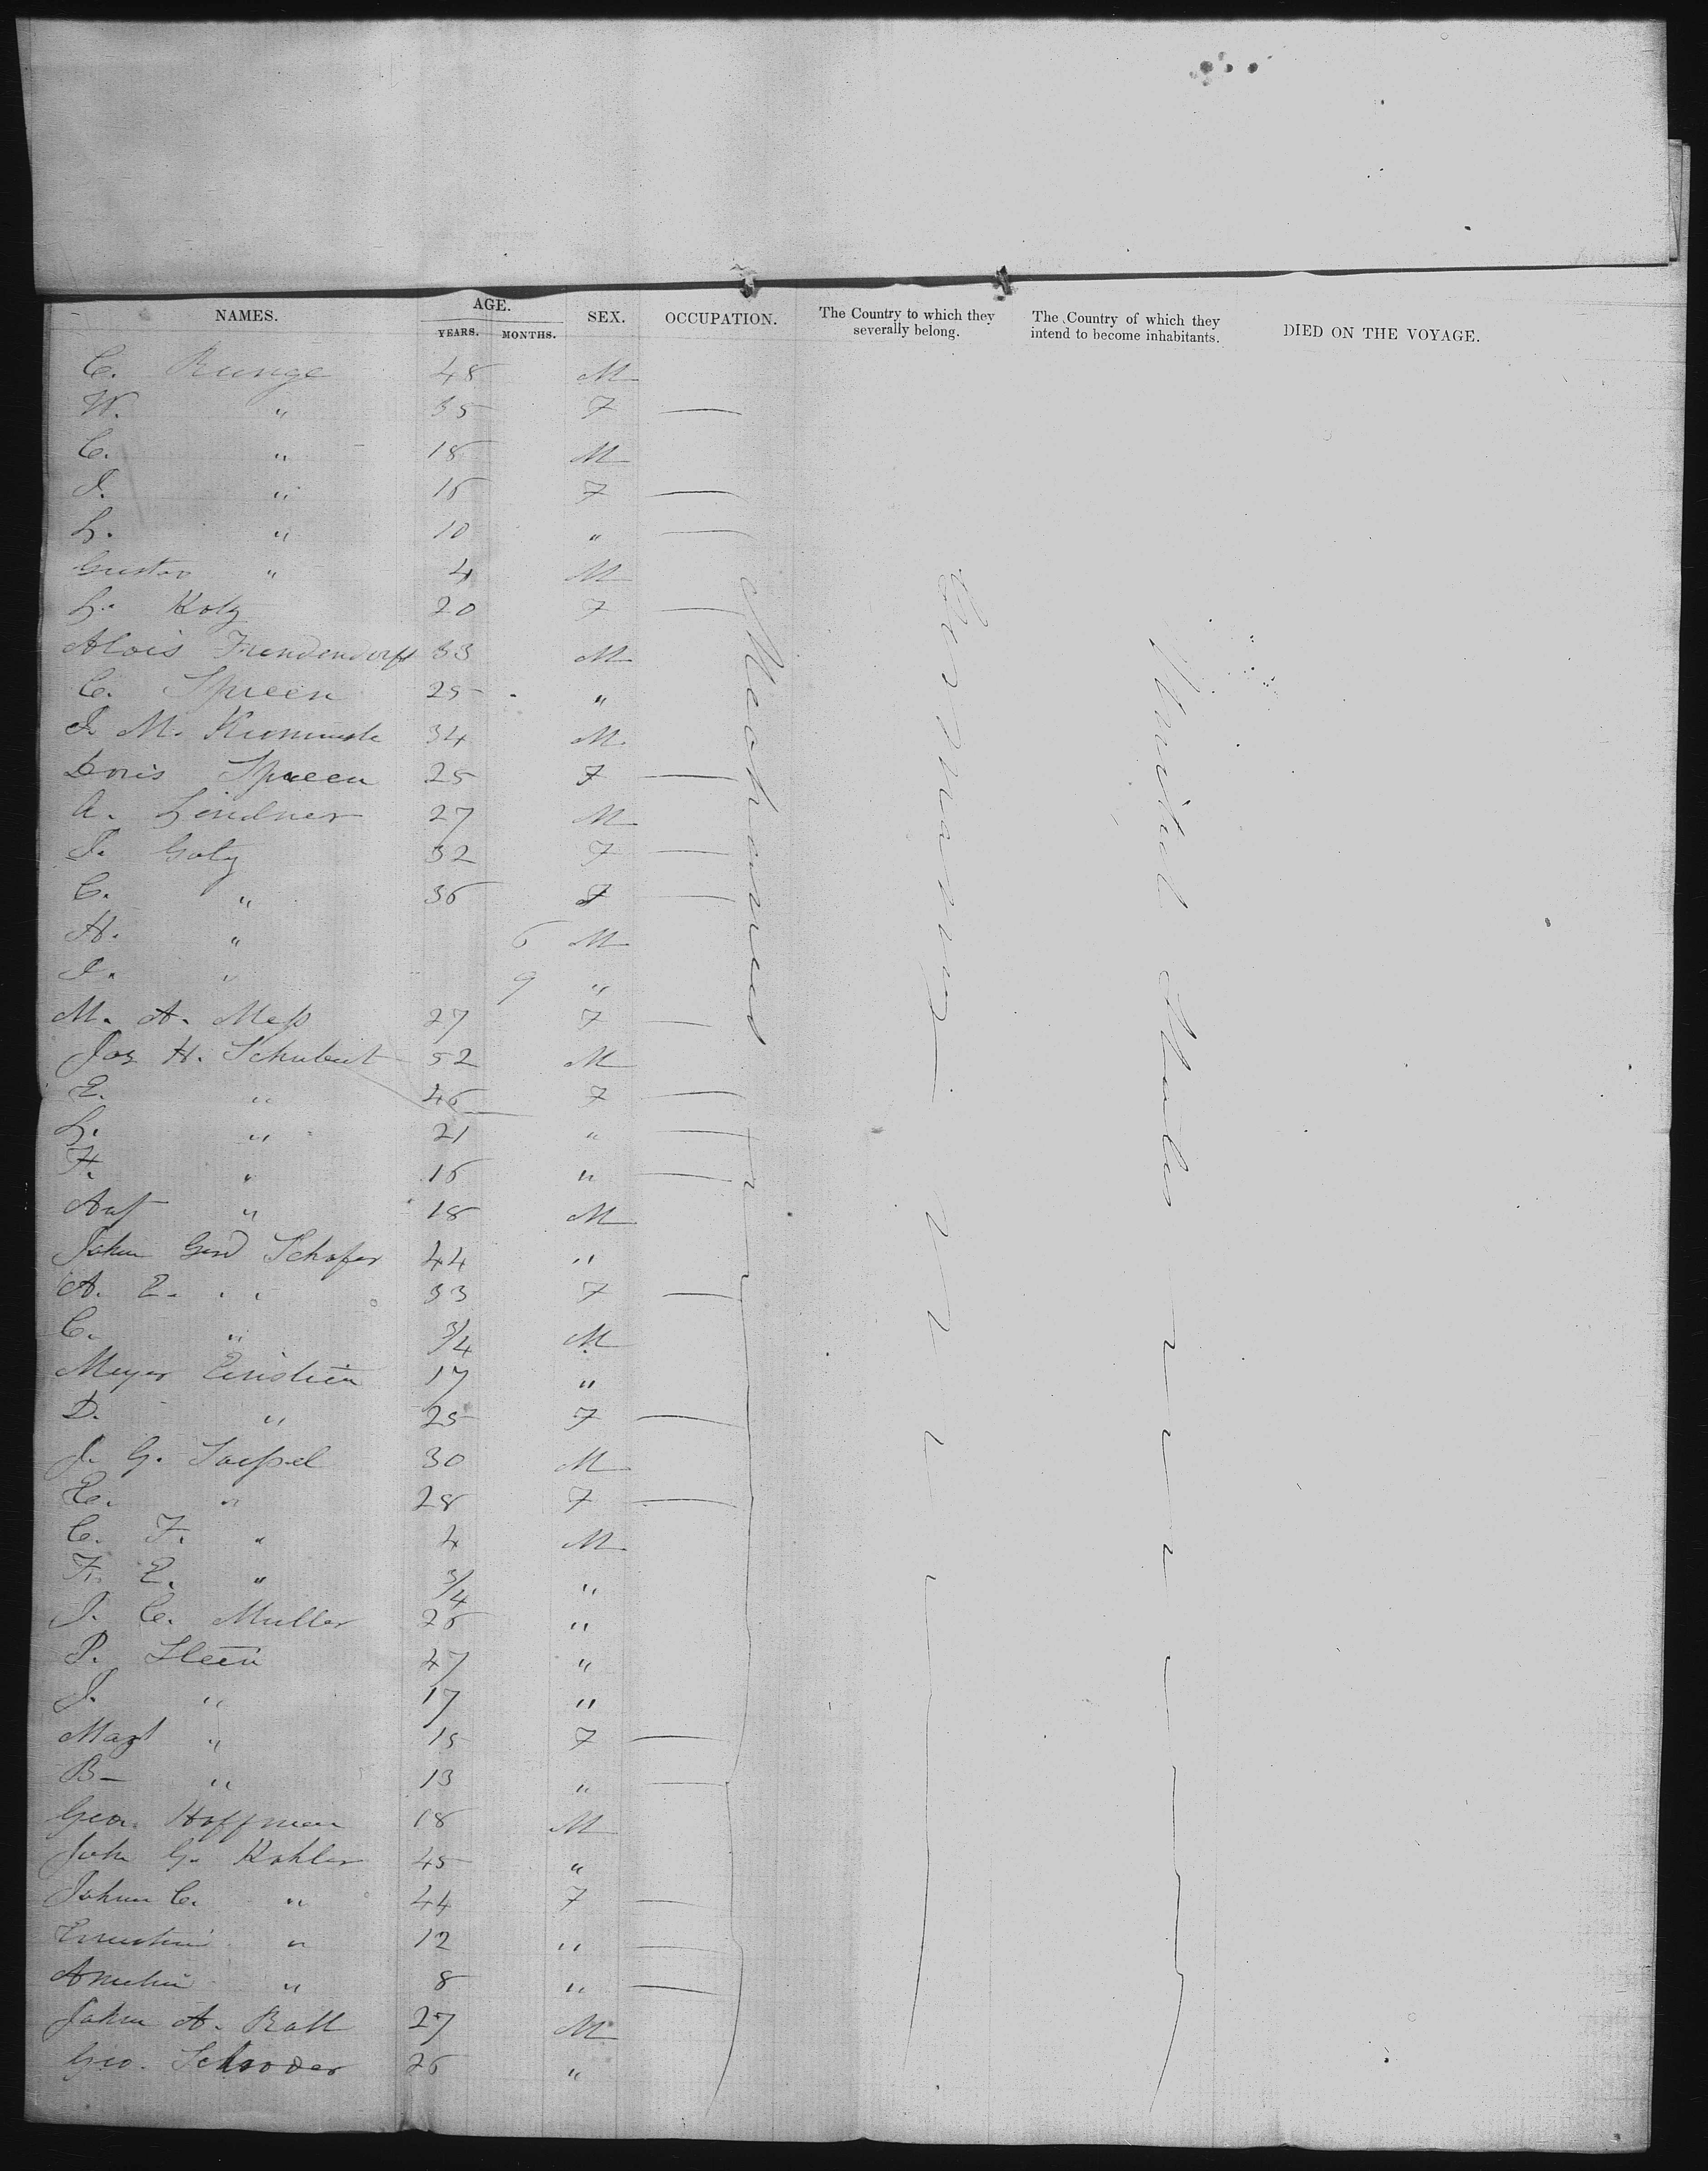 NAMES. AGE. SEX. OCCUPATION. The Country to which they severally belong. The Country of which they intend to become inhabitants. DIED ON THE VOYAGE.
YEARS. MONTHS.
C. Runge 48 M
W. " 35 F —
C. " 18 M
J. " 16 F —
L. " 10 " —
Gustav " 4 M
L. Kolz 20 F —
Alois 33 M
C. Spreen 25 "
J. M. 34 M
Doris Spreen 25 F —
A. Lindner 27 M
J. Gotz 32 F —
C. " 36 F —
H. " 6 M
J. " 9 "
M. A. Mess 27 F —
Jos H. Schubert 52 M
E. " 46 F —
L. " 21 " —
F. " 16 " —
" 18 M
Johan Gerd Schafer 44 "
A. E. " 33 F —
C. " 3/4 M
Meyer 17 "
D. " 25 F —
J. G. 30 M
E. " 28 F —
C. F. " 4 M
F. E. " 3/4 "
J. C. Muller 26 "
P. Stein 47 "
J. " 17 "
Magt " 15 F —
B— " 13 " —
Geo. Hoffman 18 M
Joh G. Kohler 45 "
Johan C. " 44 F —
Ernestine " 12 " —
" 8 " —
Johan A. Rall 27 M
Geo. Schroder 26 "
Mechanics
Germany
United States